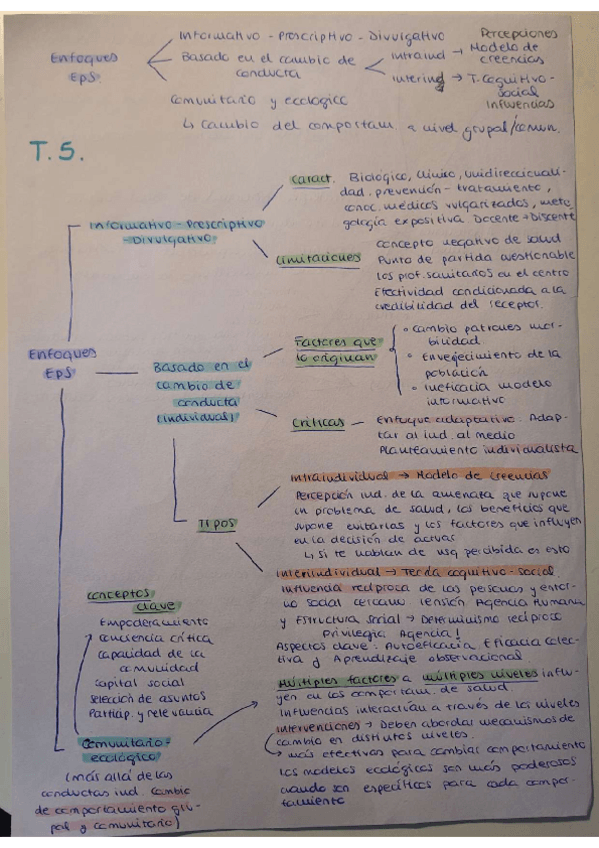 Informativo - Prescriptivo - Divulgativo
Enfoques EpS.
Basado en el cambio de conducta
intraind → Percepciones Modelo de creencias
interind → T. Cognitivo-Social Influencias
Comunitario y ecologico
↳ cambio del comportam. a nivel grupal/comun.
T.5.
Enfoques EpS
Informativo - Prescriptivo - Divulgativo
Caract.
Biológico, clínico, unidireccionali-
dad, prevención - tratamiento,
conoc. médicos vulgarizados, meto-
gología expositiva Docente → Discente
Limitaciones
concepto negativo de salud
Punto de partida cuestionable
los prof. sanitarios en el centro
Efectividad condicionada a la
credibilidad del receptor.
Basado en el
cambio de
conducta
(individual)
Factores que
lo originan
• Cambio patrones mor-
bilidad
• Envejecimiento de la
población
• Ineficacia modelo
informativo
Críticas
Enfoque adaptativo. Adap-
tar al ind. al medio
Planteamiento individualista
Tipos
Intraindividual → Modelo de creencias
Percepción ind. de la amenaza que supone
un problema de salud, los beneficios que
supone evitarlas y los factores que influyen
en la decisión de actuar
↳ si te hablan de percibida es esto
Interindividual → Teoría cognitivo-social
Influencia recíproca de las personas y entor-
no social cercano Tensión Agencia Humana
y Estructura social → Determinismo recíproco
Privilegia Agencia!
Aspectos clave: Autoeficacia, Eficacia colec-
tiva y Aprendizaje observacional
conceptos
clave
Empoderamiento
conciencia crítica
capacidad de la
comunidad
capital social
selección de asuntos
Particip. y relevancia
Comunitario-
ecológico
(más allá de las
conductas ind. Cambio
de comportamiento gru-
pal y comunitario)
Múltiples factores a múltiples niveles influ-
yen en los comportam. de salud.
Influencias interactúan a través de los niveles
Intervenciones → Deben abordar mecanismos de
cambio en distintos niveles.
→ más efectivas para cambiar comportamiento
Los modelos ecológicos son más poderosos
cuando son específicos para cada compor-
tamiento